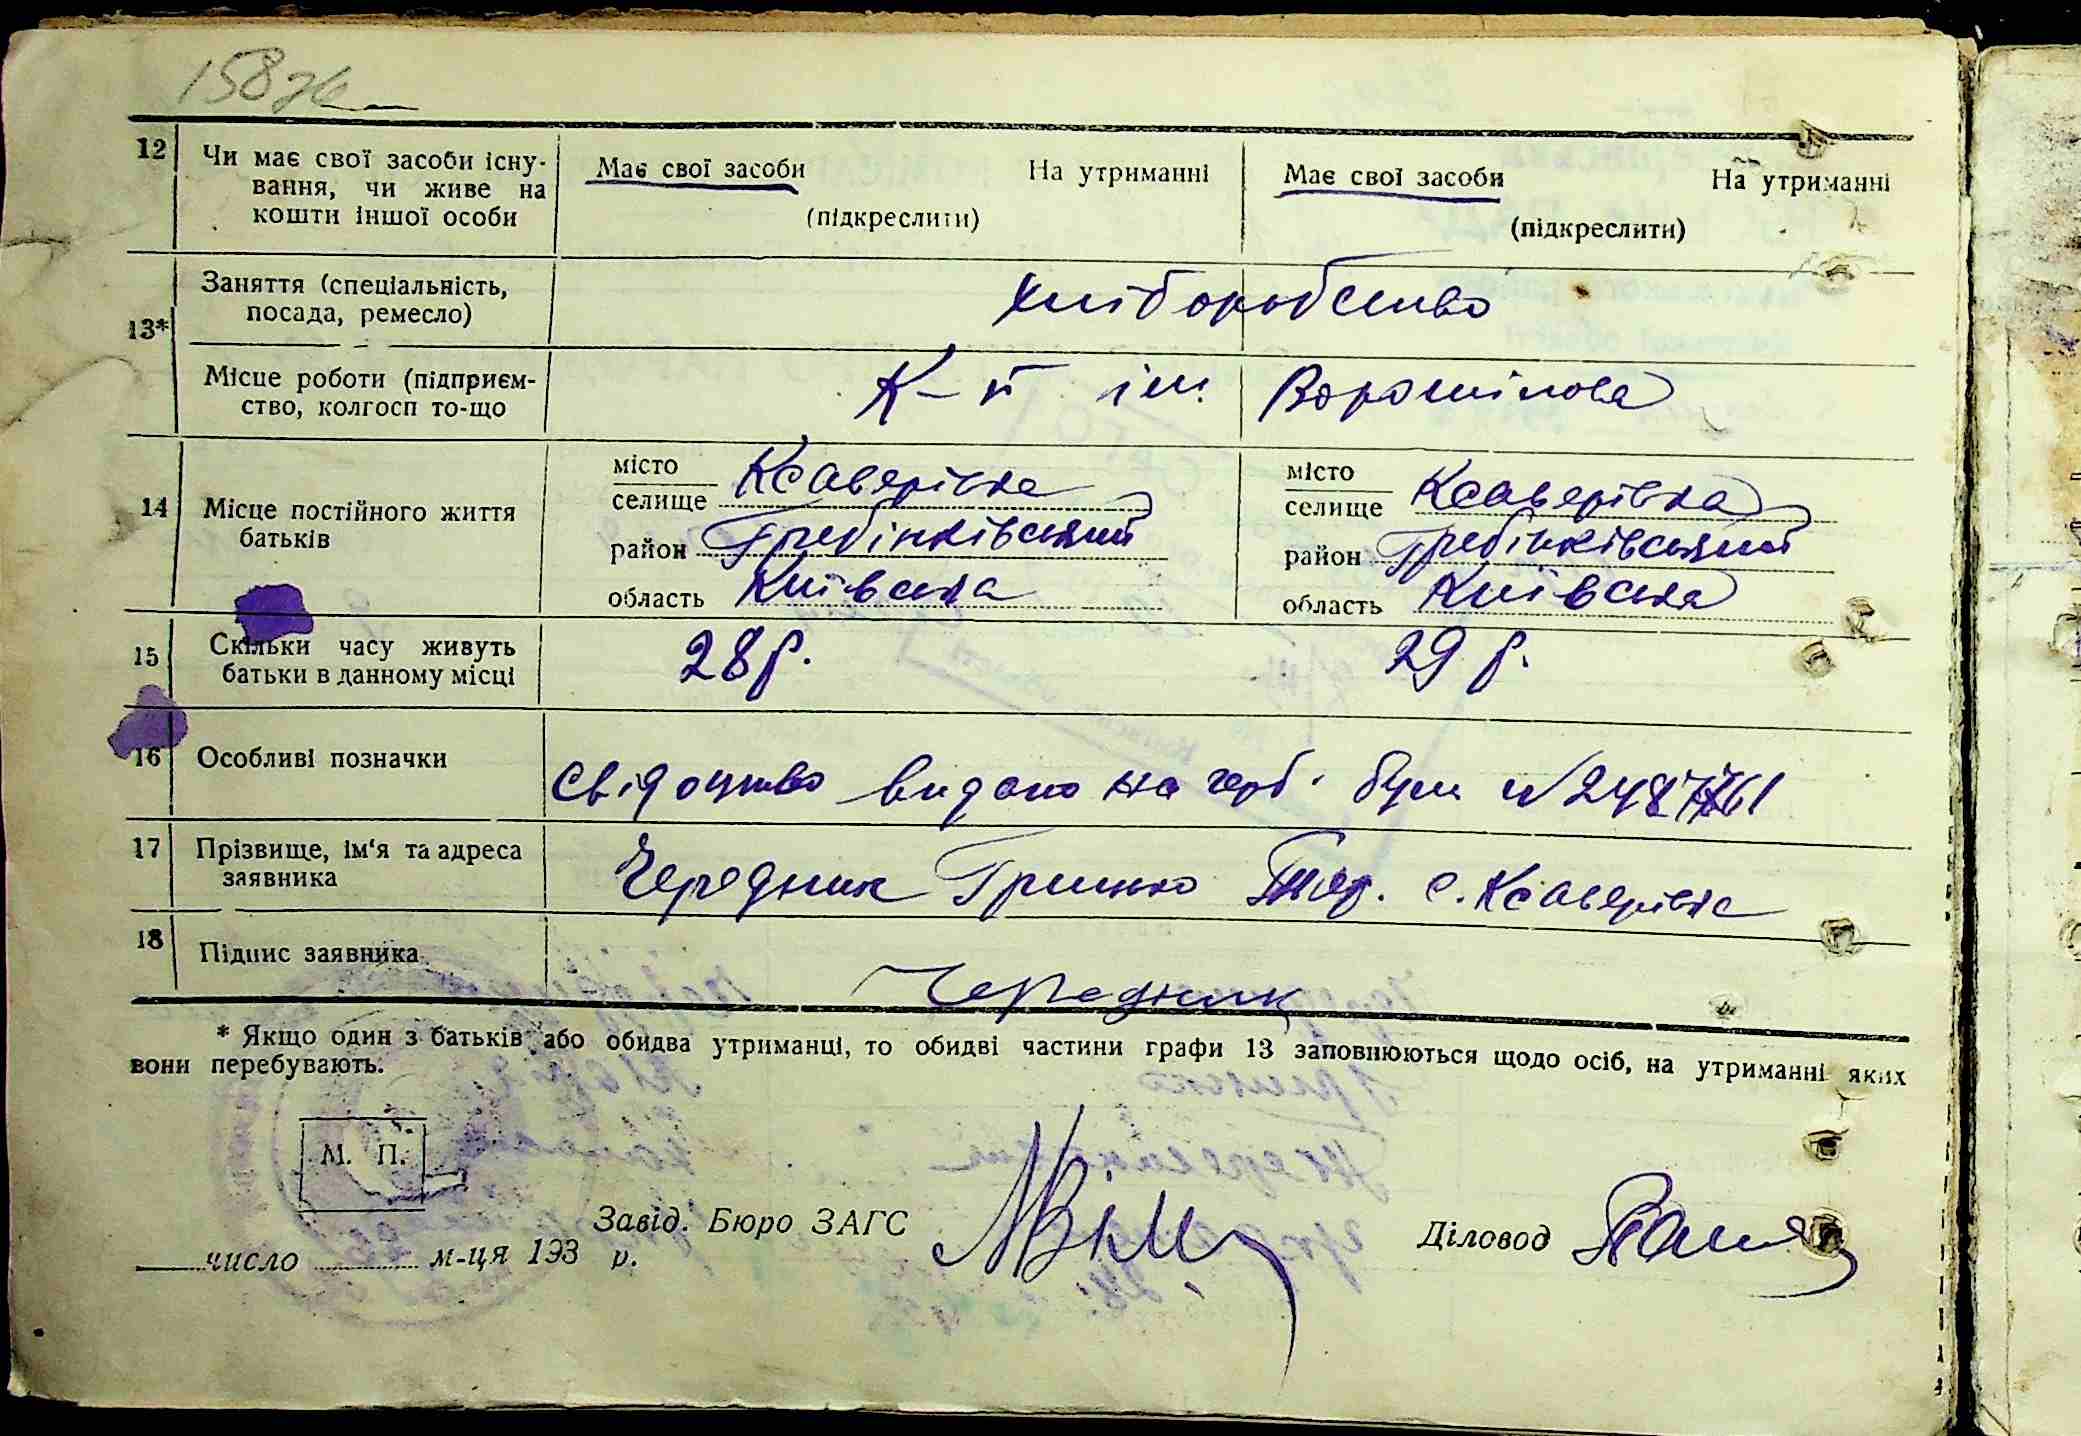 158
12 Чи має свої засоби існу- Має свої засоби На утриманні Має свої засоби На утриманні
вання, чи живе на
кошти іншої особи (підкреслити) (підкреслити)
Заняття (спеціальність, хліборобство
13* посада, ремесло)
Місце роботи (підприєм- К-п ім. Ворошілова
ство, колгосп то-що
місто Ксаверівка місто Ксаверівка
14 Місце постійного життя селище селище
батьків район Гребінківський район Гребінківський
область Київська область Київська
15 Скільки часу живуть 28 р. 29 р.
батьки в данному місці
16 Особливі позначки Свідоцтво видано на герб. бум №
17 Прізвище, ім'я та адреса Чередник Грицько с. Ксаверівка
заявника
18 Підпис заявника Чередник
* Якщо один з батьків або обидва утриманці, то обидві частини графи 13 заповнюються щодо осіб, на утриманні яких
вони перебувають.
М. П.
Завід. Бюро ЗАГС Діловод
число м-ця 193 р.